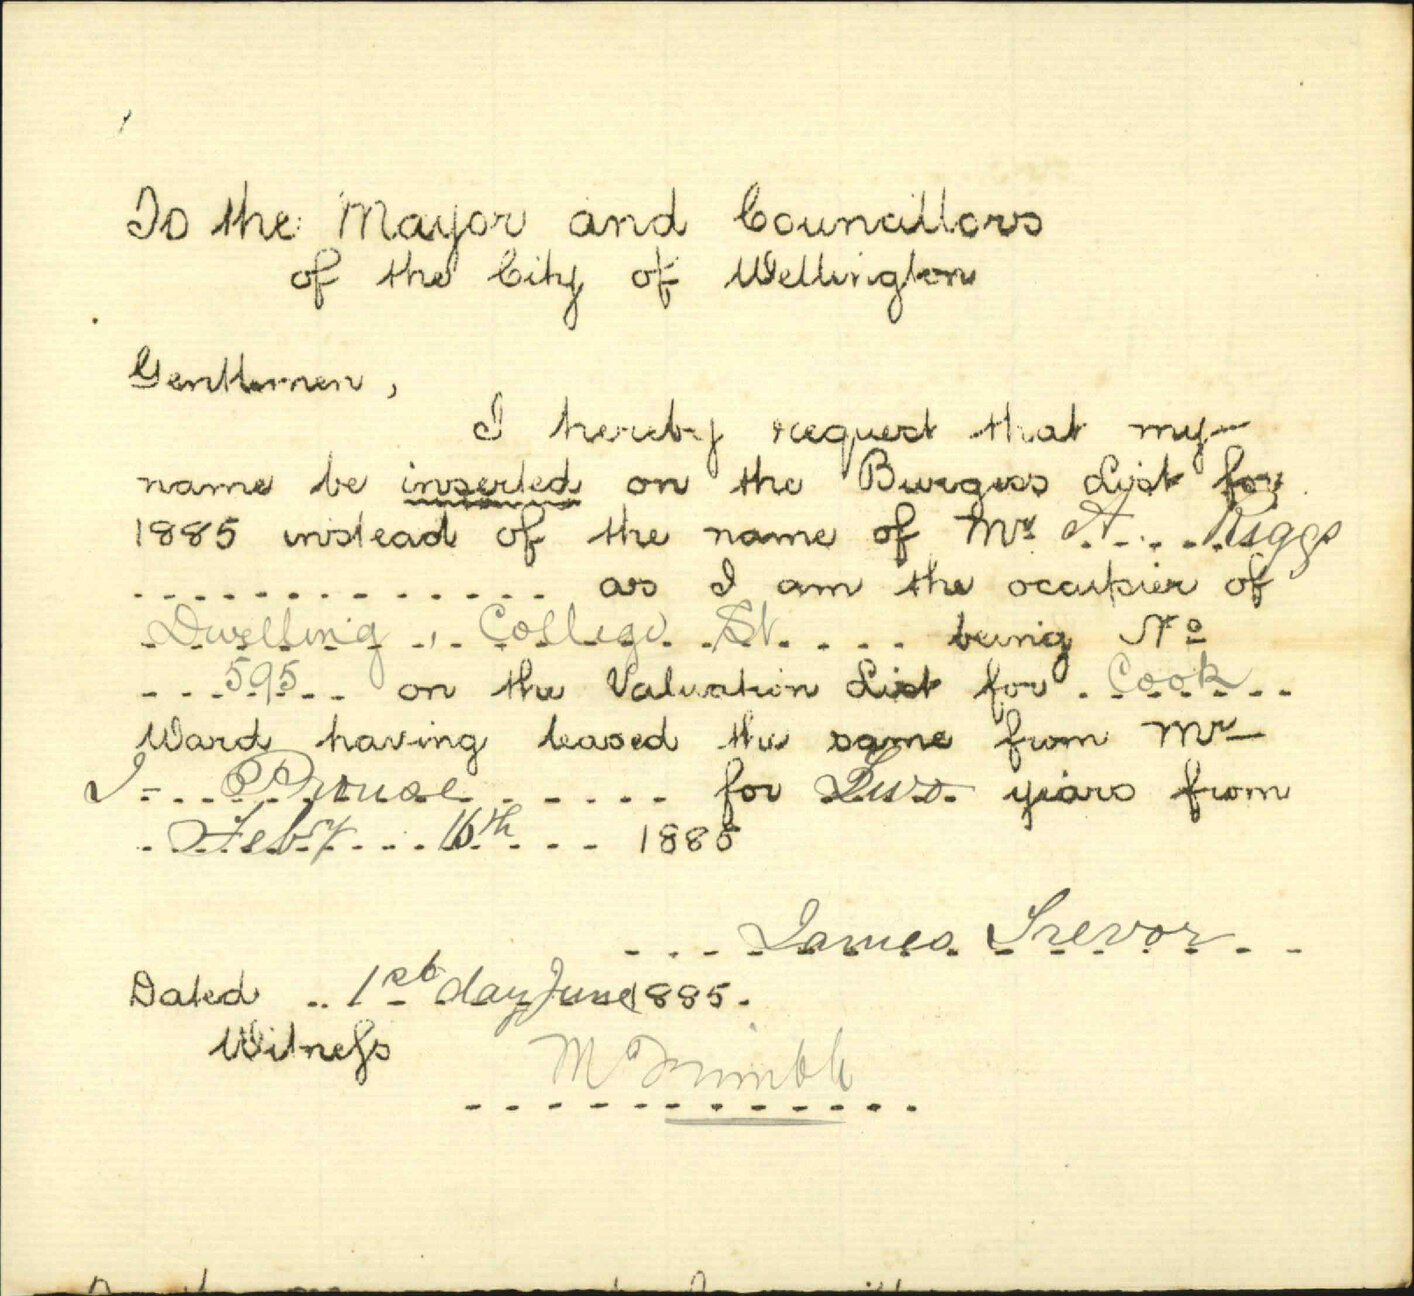 To the Mayor and Councillors
of the City of Wellington
Gentlemen,
I hereby request that my
name be inserted on the Burgess List for
1885 instead of the name of Mr A. Riggs
as I am the occupier of
Dwelling, College St. being No
595 on the Valuation List for Cook
Ward having leased the same from Mr
J Prouse for Two years from
Feby 16th 1885
James Trevor
Dated 1st day June 1885.
Witness